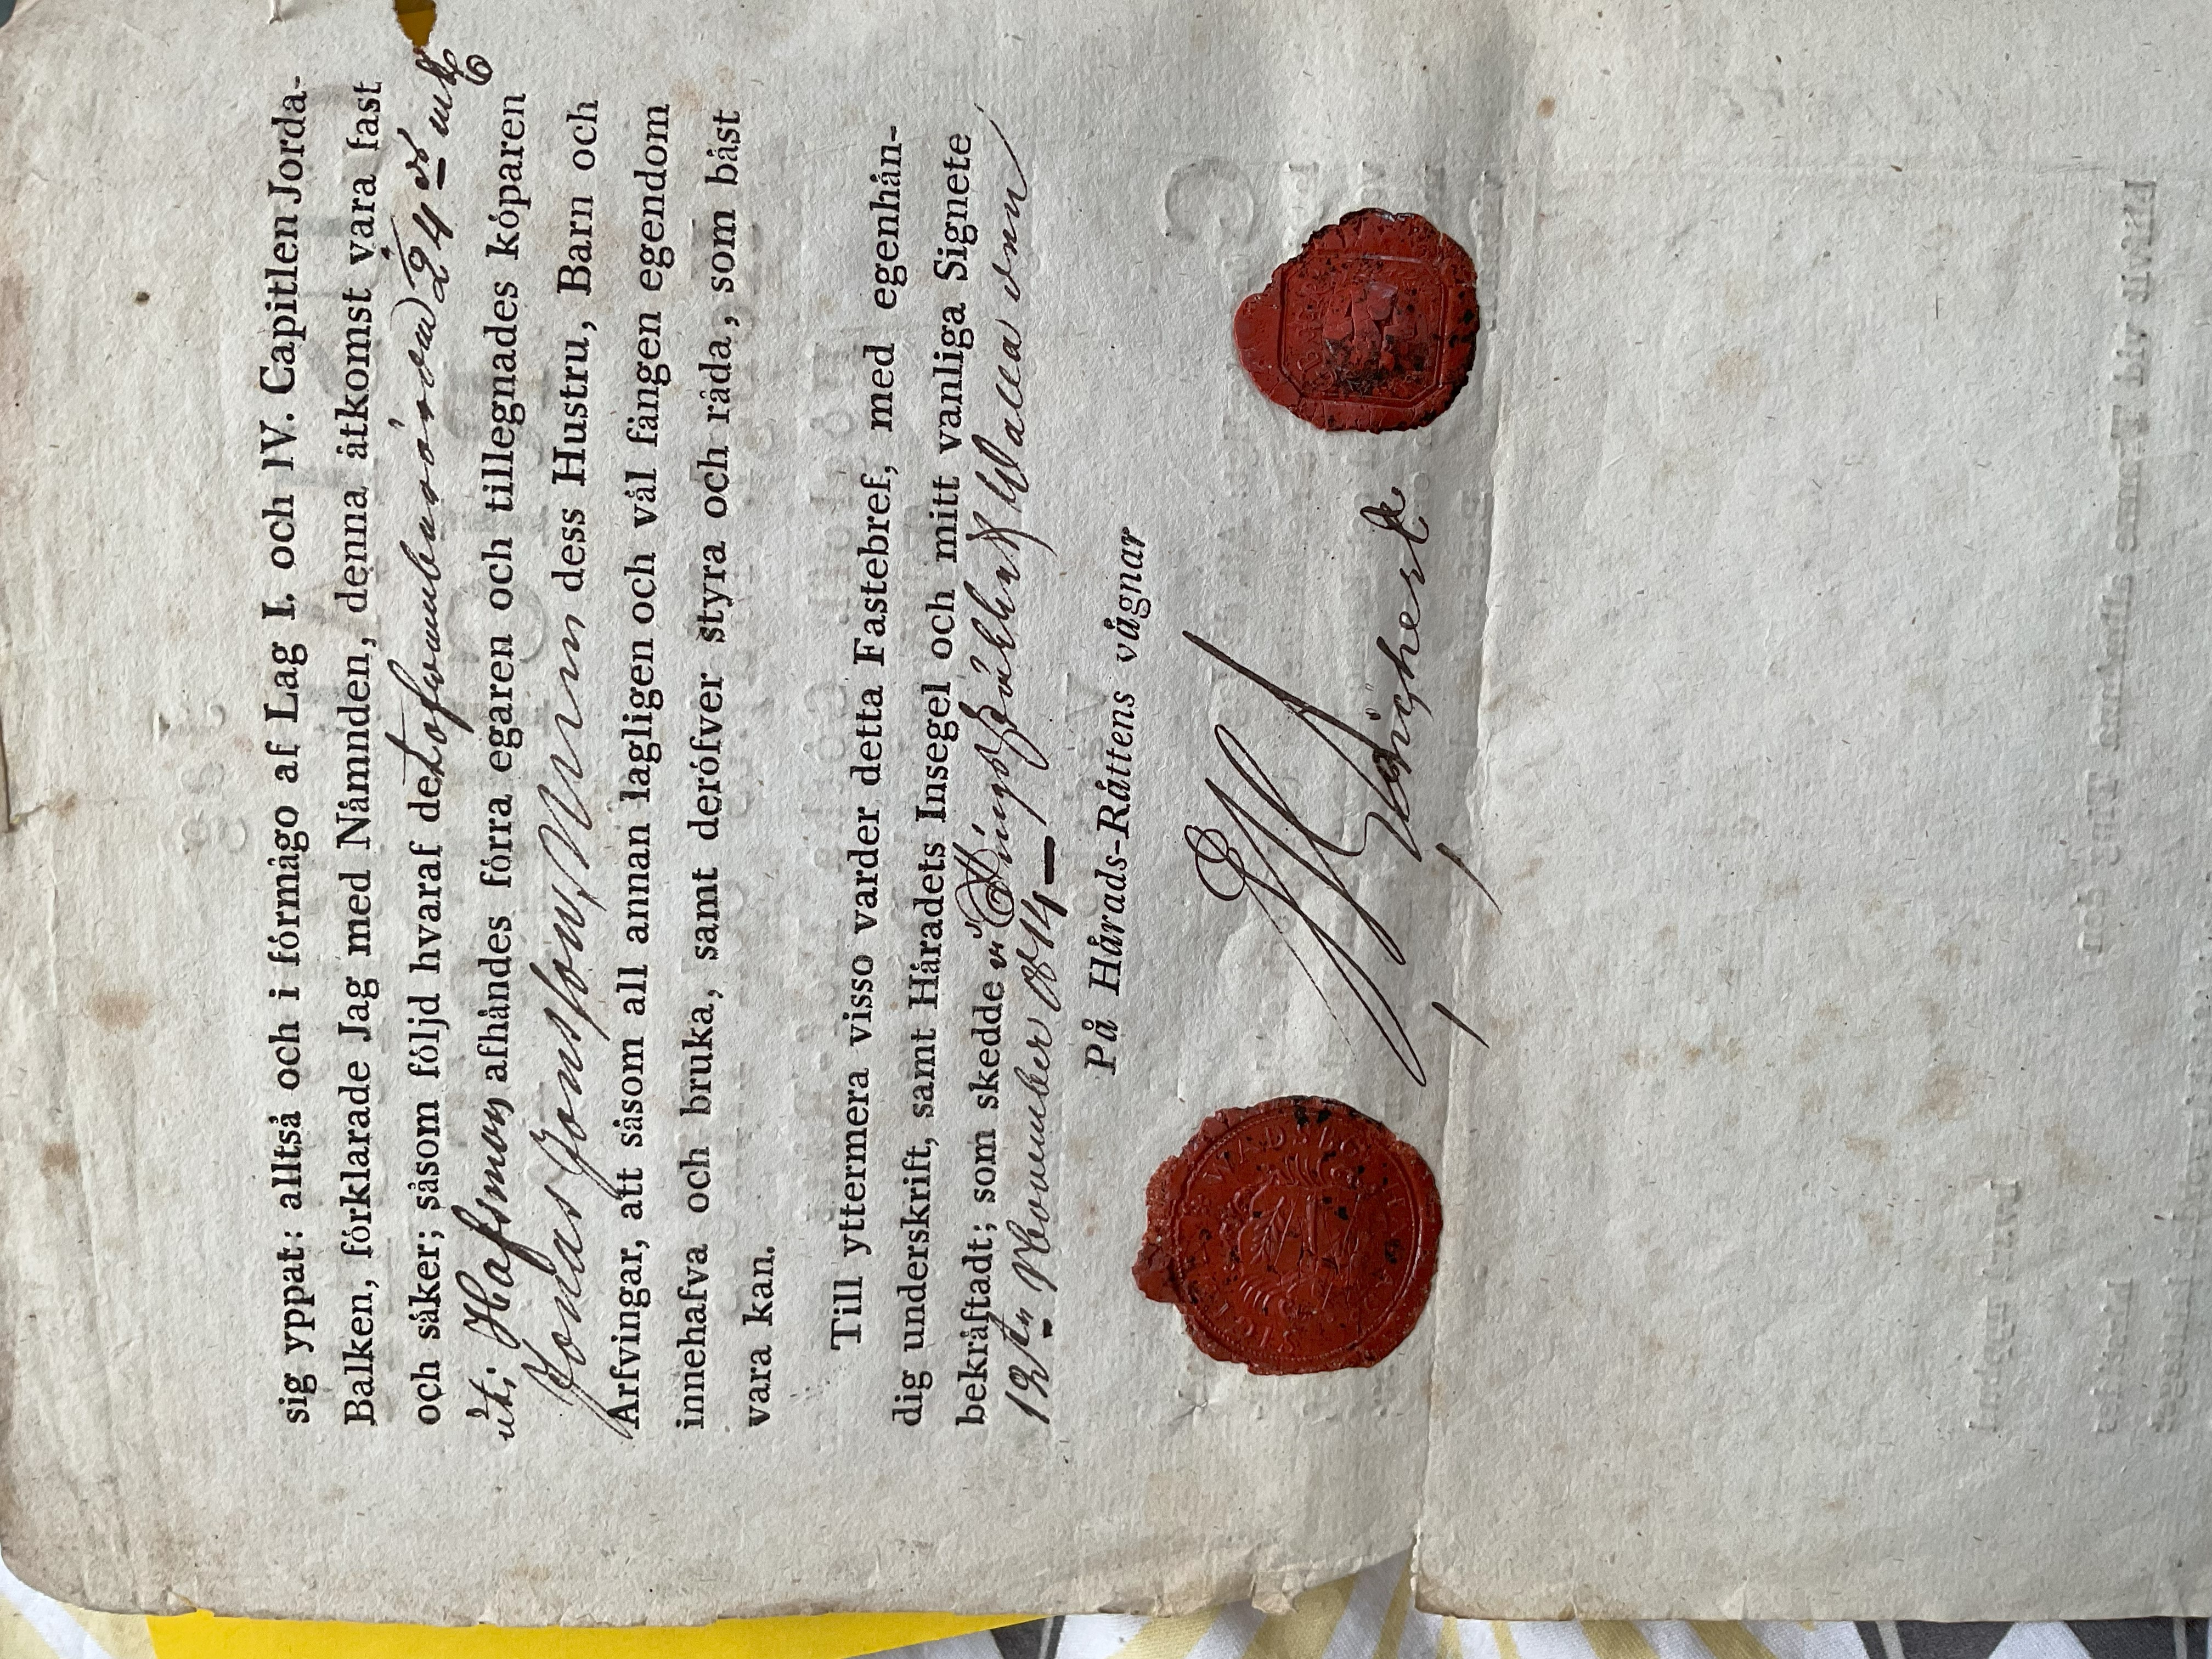 sig yppat: alltså och i förmågo af Lag I. och IV. Capitlen Jorda-
Balken, förklarade Jag med Nämnden, denna åtkomst vara fast
och säker; såsom följd hvaraf det ofvanberörda 24
uti Hafsmon afhändes förra egaren och tillegnades köparen
Jonas Jonsson dess Hustru, Barn och
Arfvingar, att såsom all annan lagligen och väl fången egendom
innehafva och bruka, samt deröfver styra och råda, som bäst
vara kan.
Till yttermera visso varder detta Fastebref, med egenhän-
dig underskrift, samt Häradets Insegel och mitt vanliga Signete
bekräftadt; som skedde å Tingsstället Walla den
12te November 1814
På Härads-Rättens vägnar